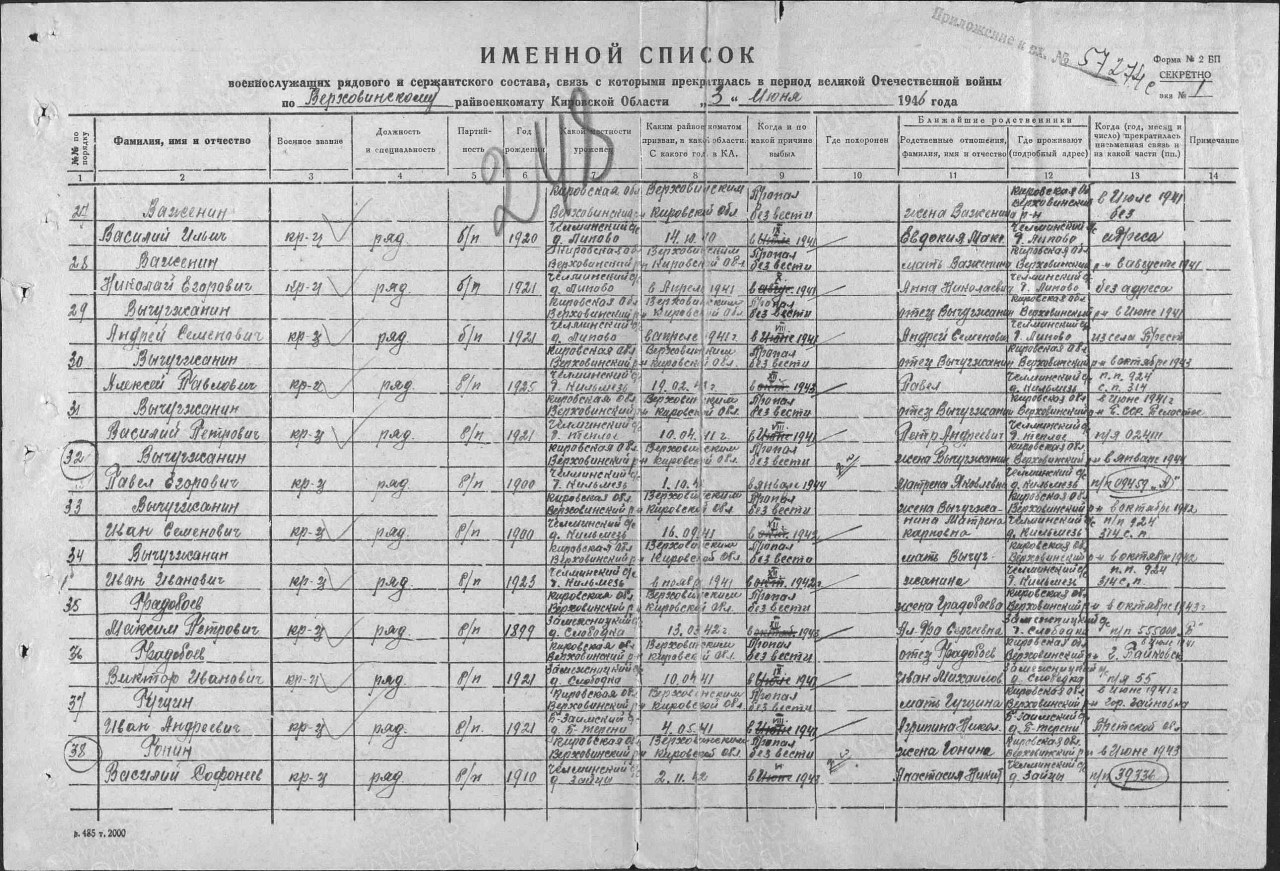 Приложение к вх. № 57274с
Форма № 2 БП
СЕКРЕТНО
экз № 1
ИМЕННОЙ СПИСОК
военнослужащих рядового и сержантского состава, связь с которыми прекратилась в период великой Отечественной войны
по Верховинскому райвоенкомату Кировской Области „3“ Июня 1946 года
248
№№ по порядку
Фамилия, имя и отчество
Военное звание
Должность и специальность
Партийность
Год рождения
Какой местности уроженец
Каким райвоенкоматом призван, в какой области. С какого года в КА.
Когда и по какой причине выбыл
Где похоронен
Ближайшие родственники
Родственные отношения, фамилия, имя и отчество
Где проживают (подробный адрес)
Когда (год, месяц и число) прекратилась письменная связь и на какой части (пп.)
Примечание
1 2 3 4 5 6 7 8 9 10 11 12 13 14
27 Важенин Кировская обл Верховинским Пропал Кировская обл в Июле 1941
Верховинский Кировской Обл. без вести жена Важенина Верховинский р-н без
Василий Ильич кр-ц ряд б/п 1920 д. Липово 14.10.40 в 1941 Евдокия Макс. д. Липово адреса
28 Важенин Кировская обл Верховинским Пропал Кировская обл
Верховинский р-н Кировской Обл. без вести мать Важенина Верховинский р-н в августе 1941
Николай Егорович кр-ц ряд. б/п 1921 д. Липово в Апреле 1941 в 1941 Анна Николаевн д. Липово без адреса
29 Вычугжанин Кировская обл Верховинским Пропал Кировская обл
Верховинский р-н Кировской Обл. без вести отец Вычугжанин Верховинский р-н в Июне 1941
Андрей Семенович кр-ц ряд. б/п 1921 д. Липово в апреле 1941 г. в 1941 Семенович д. Липово из села
30 Вычугжанин Кировская обл Верховинским Пропал Кировская обл
Верховинский р-н Кировской Обл. без вести отец Вычугжанин Верховинский р-н в октябре 1943
Алексей Павлович кр-ц ряд б/п 1925 д. Кильмезь 19.02.43 г в 1943 Павел д. Кильмезь п.п. 924 с.п. 314
31 Вычугжанин Кировская обл Верховинским Пропал Кировская обл в Июне 1941 г
Верховинский р-н Кировской Обл. без вести отец Вычугжанин Верховинский р-н
Василий Петрович кр-ц ряд. б/п 1921 10.04.41 г. в 1941 Петр Андреевич п/я
32 Вычугжанин Кировская обл Верховинским Пропал Кировская обл
Верховинский р-н Кировской Обл. без вести жена Вычугжанин Верховинский р-н в январе 1944
Павел Егорович кр-ц ряд. б/п 1900 д. Кильмезь 1.10. в январе 1944 Матрена Яковлевна д. Кильмезь п/п 09459 „А“
33 Вычугжанин Кировская обл Верховинским Пропал Кировская обл
Верховинский р-н Кировской Обл. без вести жена Вычугжанина Матрена Верховинский р-н в октябре 1942
Иван Семенович кр-ц ряд б/п 1900 д. Кильмезь 16.09.41 в 1942 Карповна д. Кильмезь п/п 924 314 с.п.
34 Вычугжанин Кировская обл Верховинским Пропал Кировская обл
Верховинский р-н Кировской Обл. без вести мать Вычуг- Верховинский р-н в октябре 1942
Иван Иванович кр-ц ряд. б/п 1923 д. Кильмезь в ноябре 1941 в 1942 г жанина д. Кильмезь п.п. 924 314 с.п.
35 Градобоев Кировская обл Верховинским Пропал Кировская обл
Верховинский р-н Кировской Обл. без вести жена Градобоева Верховинский р-н в октябре 1943 г
Максим Петрович кр-ц ряд. б/п 1899 д. Слободка 13.03.42 г. в 1943 Ал-дра Сергеевна д. Слободка п/п
36 Градобоев Кировская обл Верховинским Пропал Кировская обл в Июне 1941
Верховинский р-н Кировской Обл. без вести отец Градобоев Верховинский р-н
Виктор Иванович кр-ц ряд б/п 1921 д. Слободка 10.04.41 в 1941 Иван Михайлов д. Слободка п/я 55
37 Гущин Кировская обл Верховинским Пропал Кировская обл в Июне 1941 г
Верховинский р-н Кировской Обл. без вести мать Гущина Верховинский р-н
Иван Андреевич кр-ц ряд. б/п 1921 4.05.41 в 1941 Никол. Брестской обл
38 Гонин Кировская обл Верховинским Пропал Кировская обл
Верховинский р-н Кировской Обл. без вести жена Гонина Верховинский р-н в Июне 1943
Василий Софонеев кр-ц ряд б/п 1910 д. Зайцы 2.11.42 в 1943 Анастасия Никит д. Зайцы п/п 39336
в. 485 т. 2000